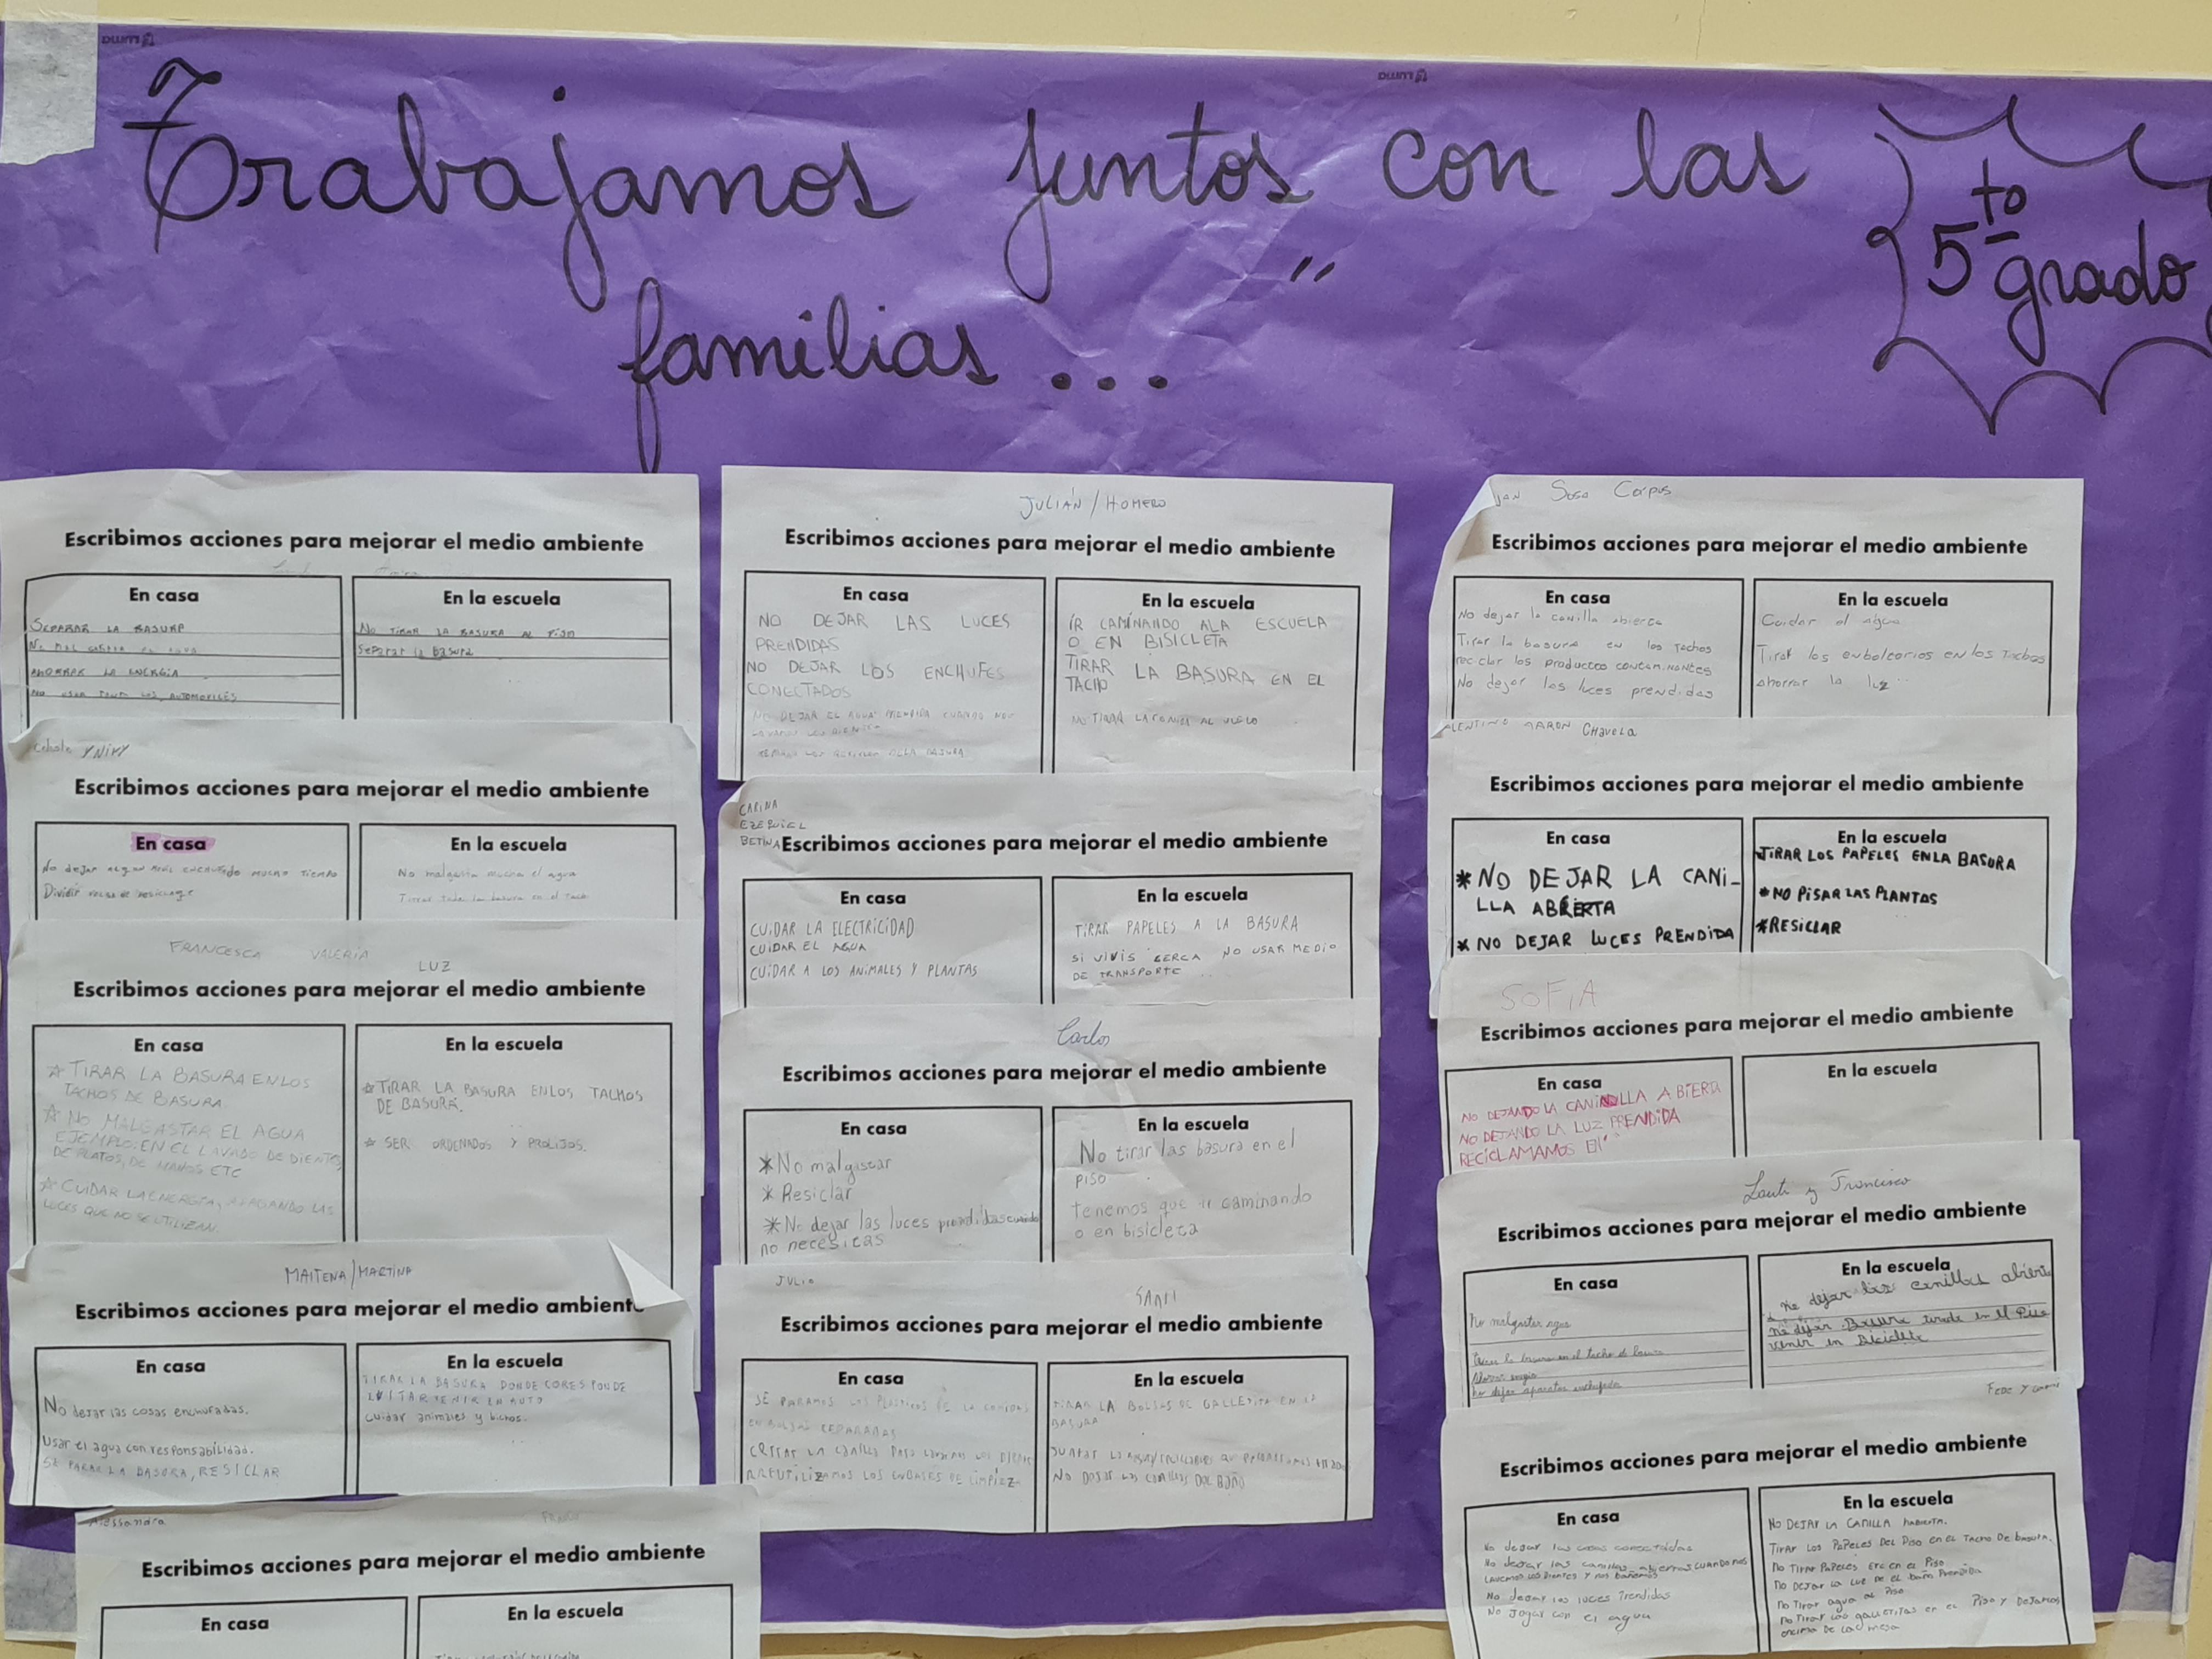 Trabajamos juntos con las
familias...
5to grado
Escribimos acciones para mejorar el medio ambiente
En casa
SEPARAR LA BASURA
AHORRAR LA ENERGÍA
NO USAR TANTO LOS AUTOMOVILES
En la escuela
NO TIRAR LA BASURA AL PISO
Separar la Basura
Celeste
Escribimos acciones para mejorar el medio ambiente
En casa
No dejar algun enchufado mucho tiempo
Dividir
En la escuela
No malgastar mucho el agua
Tirar toda la basura en el tacho
FRANCESCA VALERIA LUZ
Escribimos acciones para mejorar el medio ambiente
En casa
☆ TIRAR LA BASURA EN LOS
TACHOS DE BASURA.
☆ NO MALGASTAR EL AGUA
EJEMPLO: EN EL LAVADO DE DIENTES,
DE PLATOS, DE MANOS ETC
☆ CUIDAR LA ENERGIA, APAGANDO LAS
LUCES QUE NO SE UTILIZAN.
En la escuela
☆ TIRAR LA BASURA EN LOS TACHOS
DE BASURA.
☆ SER ORDENADOS Y PROLIJOS.
MAITENA/MARTINA
Escribimos acciones para mejorar el medio ambiente
En casa
No dejar las cosas enchufadas.
Usar el agua con responsabilidad.
SEPARAR LA BASURA, RESICLAR
En la escuela
TIRAR LA BASURA DONDE CORESPONDE
EVITAR VENIR EN AUTO
cuidar animales y bichos.
Alessandra
Escribimos acciones para mejorar el medio ambiente
En casa
En la escuela
JULIÁN/HOMERO
Escribimos acciones para mejorar el medio ambiente
En casa
NO DEJAR LAS LUCES
PRENDIDAS
NO DEJAR LOS ENCHUFES
CONECTADOS
NO DEJAR EL AGUA PRENDIDA CUANDO NOS
LAVAMOS LOS DIENTES
En la escuela
ÍR CAMÍNANDO ALA ESCUELA
O EN BISICLETA
TIRAR LA BASURA EN EL
TACHO
NO TIRAR LA COMIDA AL SUELO
CARINA
EZEQUIEL
BETINA
Escribimos acciones para mejorar el medio ambiente
En casa
CUIDAR LA ELECTRICIDAD
CUIDAR EL AGUA
CUIDAR A LOS ANIMALES Y PLANTAS
En la escuela
TIRAR PAPELES A LA BASURA
SI VIVIS CERCA NO USAR MEDIO
DE TRANSPORTE
Carlos
Escribimos acciones para mejorar el medio ambiente
En casa
*No malgastar
*Resiclar
*No dejar las luces prendidas cuando
no necesitas
En la escuela
No tirar las basura en el
piso
tenemos que ir caminando
o en bisicleta
JULIO SANTI
Escribimos acciones para mejorar el medio ambiente
En casa
SEPARAMOS LOS PLASTICOS DE LA COMIDAS
EN BOLSAS SEPARADAS
CERRAR LA CANILLA PARA LAVARNOS LOS DIENTES
RREUTILIZAMOS LOS ENBASES DE LIMPIEZ
En la escuela
TIRAR LA BOLSAS DE GALLETITA EN LA
BASURA
NO DEJAR LAS CANILLAS DEL BAÑO
Sosa Campos
Escribimos acciones para mejorar el medio ambiente
En casa
No dejar la canilla abierta
Tirar la basura en los tachos
reciclar los productos contaminantes
No dejar las luces prendidas
En la escuela
Cuidar el agua
Tirar los enboltorios en los Tachos
ahorrar la luz
AARON CHAVELA
Escribimos acciones para mejorar el medio ambiente
En casa
*NO DEJAR LA CANI-
LLA ABIERTA
* NO DEJAR LUCES PRENDIDA
En la escuela
TIRAR LOS PAPELES EN LA BASURA
*NO PISAR LAS PLANTAS
*RESICLAR
SOFIA
Escribimos acciones para mejorar el medio ambiente
En casa
NO DEJANDO LA CANILLA ABIERTA
NO DEJANDO LA LUZ PRENDIDA
RECICLAMAMOS EN
En la escuela
Lauti y Francisco
Escribimos acciones para mejorar el medio ambiente
En casa
No malgastar agua
Tirar la basura en el tacho de basura
Ahorrar energia
No dejar aparatos enchufados
En la escuela
no dejar las canillas abiert
no dejar Basura tirada en el Piso
venir en Bicicleta
Escribimos acciones para mejorar el medio ambiente
En casa
No dejar las cosas conectadas
No dejar las canillas abiertas CUANDO NOS
LAVEMOS LOS DIENTES Y NOS BAÑEMOS
No dejar las luces Prendidas
No Jogar con el agua
En la escuela
NO DEJAR LA CANILLA HABIERTA.
TIRAR LOS PAPELES DEL PISO EN EL TACHO DE BASURA.
No TIRAR PAPELES ETC EN EL PISO
No DEJAR LA LUZ DE EL BAÑO PRENDIDA
No TIRAR agua al PISO
No TIRAR LAS GALLETITAS EN EL PISO Y DEJARLOS
ENCIMA DE LA MESA